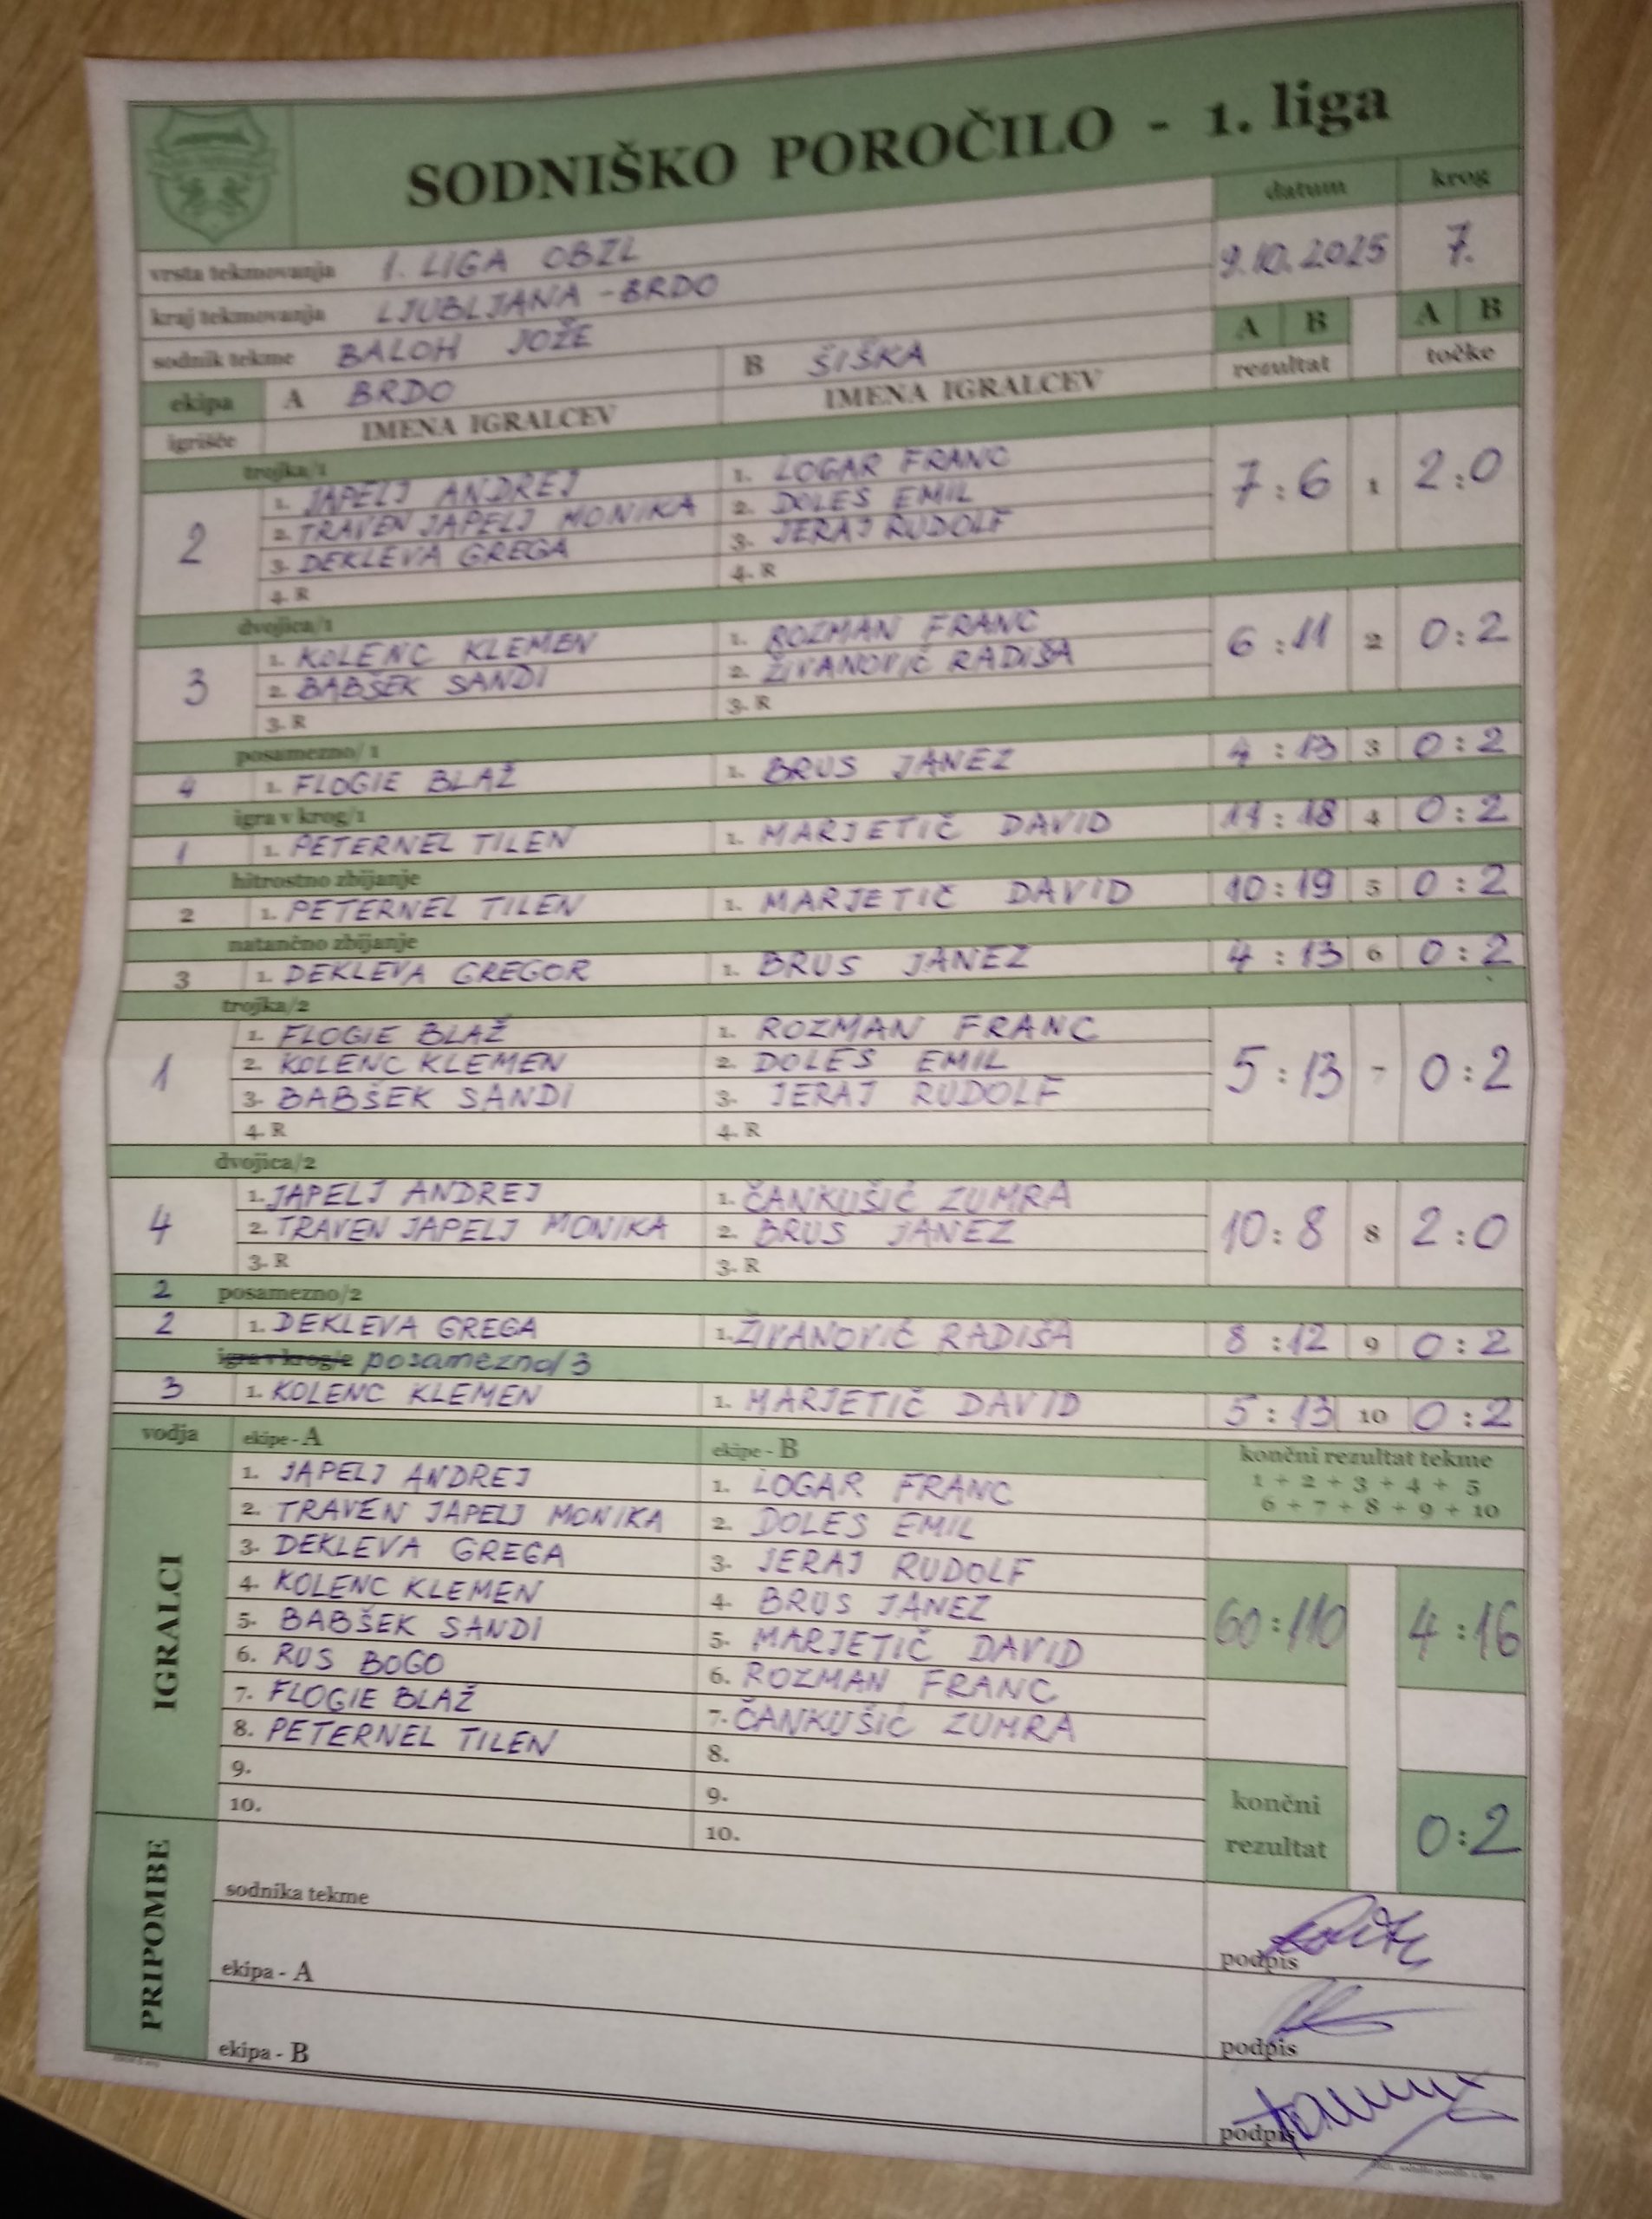 SODNIŠKO POROČILO - 1. liga
datum krog
vrsta tekmovanja 1. LIGA OBZL 9.10.2025 7.
kraj tekmovanja LJUBLJANA - BRDO
sodnik tekme BALOH JOŽE A B A B
ekipa A BRDO B ŠIŠKA rezultat točke
igrišče IMENA IGRALCEV IMENA IGRALCEV
trojka/1
1. JAPELJ ANDREJ 1. LOGAR FRANC
2 2. TRAVEN JAPELJ MONIKA 2. DOLES EMIL 7:6 1 2:0
3. DEKLEVA GREGA 3. JERAJ RUDOLF
4. R 4. R
dvojica/1
1. KOLENC KLEMEN 1. ROZMAN FRANC
3 2. BABŠEK SANDI 2. ŽIVANOVIČ RADIŠA 6:11 2 0:2
3. R 3. R
posamezno/1
4 1. FLOGIE BLAŽ 1. BRUS JANEZ 4:13 3 0:2
igra v krog/1
1 1. PETERNEL TILEN 1. MARJETIČ DAVID 11:18 4 0:2
hitrostno zbijanje
2 1. PETERNEL TILEN 1. MARJETIČ DAVID 10:19 5 0:2
natančno zbijanje
3 1. DEKLEVA GREGOR 1. BRUS JANEZ 4:13 6 0:2
trojka/2
1. FLOGIE BLAŽ 1. ROZMAN FRANC
1 2. KOLENC KLEMEN 2. DOLES EMIL 5:13 7 0:2
3. BABŠEK SANDI 3. JERAJ RUDOLF
4. R 4. R
dvojica/2
1. JAPELJ ANDREJ 1. ČANKUŠIĆ ZUMRA
4 2. TRAVEN JAPELJ MONIKA 2. BRUS JANEZ 10:8 8 2:0
3. R 3. R
2 posamezno/2
2 1. DEKLEVA GREGA 1. ŽIVANOVIČ RADIŠA 8:12 9 0:2
igra v krog/2 posamezno/3
3 1. KOLENC KLEMEN 1. MARJETIČ DAVID 5:13 10 0:2
vodja ekipe - A ekipe - B končni rezultat tekme
1 + 2 + 3 + 4 + 5
6 + 7 + 8 + 9 + 10
IGRALCI
1. JAPELJ ANDREJ 1. LOGAR FRANC
2. TRAVEN JAPELJ MONIKA 2. DOLES EMIL
3. DEKLEVA GREGA 3. JERAJ RUDOLF
4. KOLENC KLEMEN 4. BRUS JANEZ
5. BABŠEK SANDI 5. MARJETIČ DAVID 60:110 4:16
6. RUS BOGO 6. ROZMAN FRANC
7. FLOGIE BLAŽ 7. ČANKUŠIĆ ZUMRA
8. PETERNEL TILEN 8.
9. 9.
10. 10.
končni rezultat 0:2
PRIPOMBE
sodnika tekme podpis
ekipa - A podpis
ekipa - B podpis